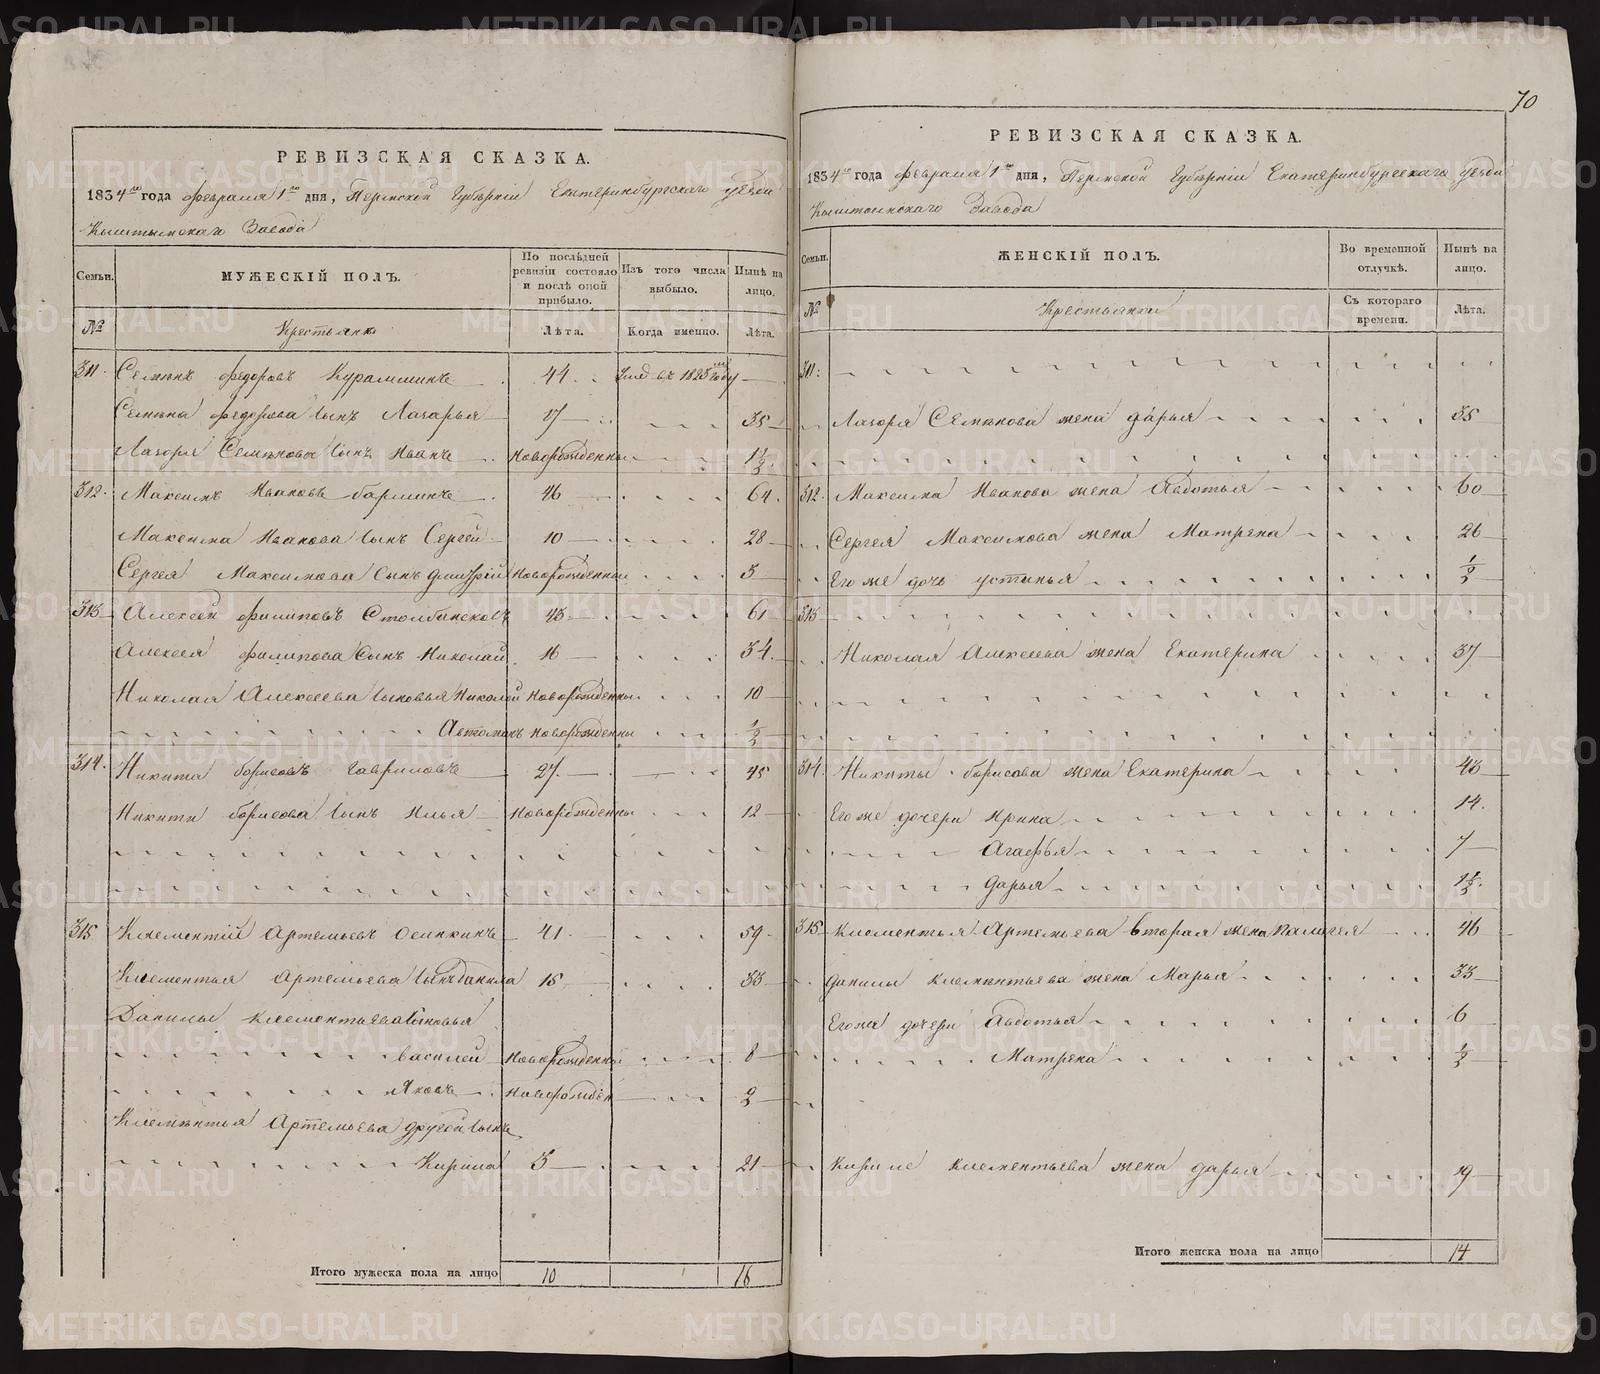 70
РЕВИЗСКАЯ СКАЗКА.
1834го года февраля 1го дня, Пермской Губернiи Екатеринбургскаго уезда
Кыштымскаго Завода
Семьи. МУЖЕСКIЙ ПОЛЪ. По послѣдней ревизiи состояло и послѣ оной прибыло. Изъ того числа выбыло. Нынѣ на лицо.
№ Крестьяне Лѣта. Когда именно. Лѣта.
311. Семенъ федоровъ 44 1823 году
Семена федорова сынъ Лазарья 17 35
Лазоря Семенова сынъ Иванъ Новорожденны 1 1/2
312. Максимъ Ивановъ барминъ 46 64
Максима Иванова сынъ Сергей 10 28
Сергея Максимова сынъ дмитрiй Новорожденны 3
313 Алексей филиповъ 43 61
Алексея филипова сынъ Николай 16 34
Николая Алексеева сыновья Николай Новорожденны 10
Автомонъ Новорожденны 1/2
314. Никита борисовъ Гавриловъ 27 45
Никиты борисова сынъ Илья Новорожденны 12
315 Клементiй Артемьевъ Осинкинъ 41 59
Клементья Артемьева сынъ данила 15 33
Данилы клементьева сыновья
василей Новорожденны 8
Яковъ Новорожден 2
Клементья Артемьева другой сынъ
Кирила 3 21
Итого мужеска пола на лицо 10 16
РЕВИЗСКАЯ СКАЗКА.
1834го года февраля 1го дня, Пермской Губернiи Екатеринбургскаго уезда
Кыштымскаго Завода
Семьи. ЖЕНСКIЙ ПОЛЪ. Во временной отлучкѣ. Нынѣ на лицо.
№ Крестьянки Съ котораго времени. Лѣта.
311.
Лазоря Семенова жена дарья 35
312. Максима Иванова жена Авдотья 60
Сергея Максимова жена Матрена 26
Его же дочь устинья 1/2
313
Николая Алексеева жена Екатерина 37
314. Никиты борисова жена Екатерина 46
Его же дочери Ирина 14.
Агафья 7
дарья 1 1/2.
315 клементья Артемьева вторая жена Палагея 46
данилы клементьева жена Марья 33
Его же дочери Авдотья 6
Матрена 1/2
кириле клементьева жена дарья 19
Итого женска пола на лицо 14
METRIKI.GASO-URAL.RU